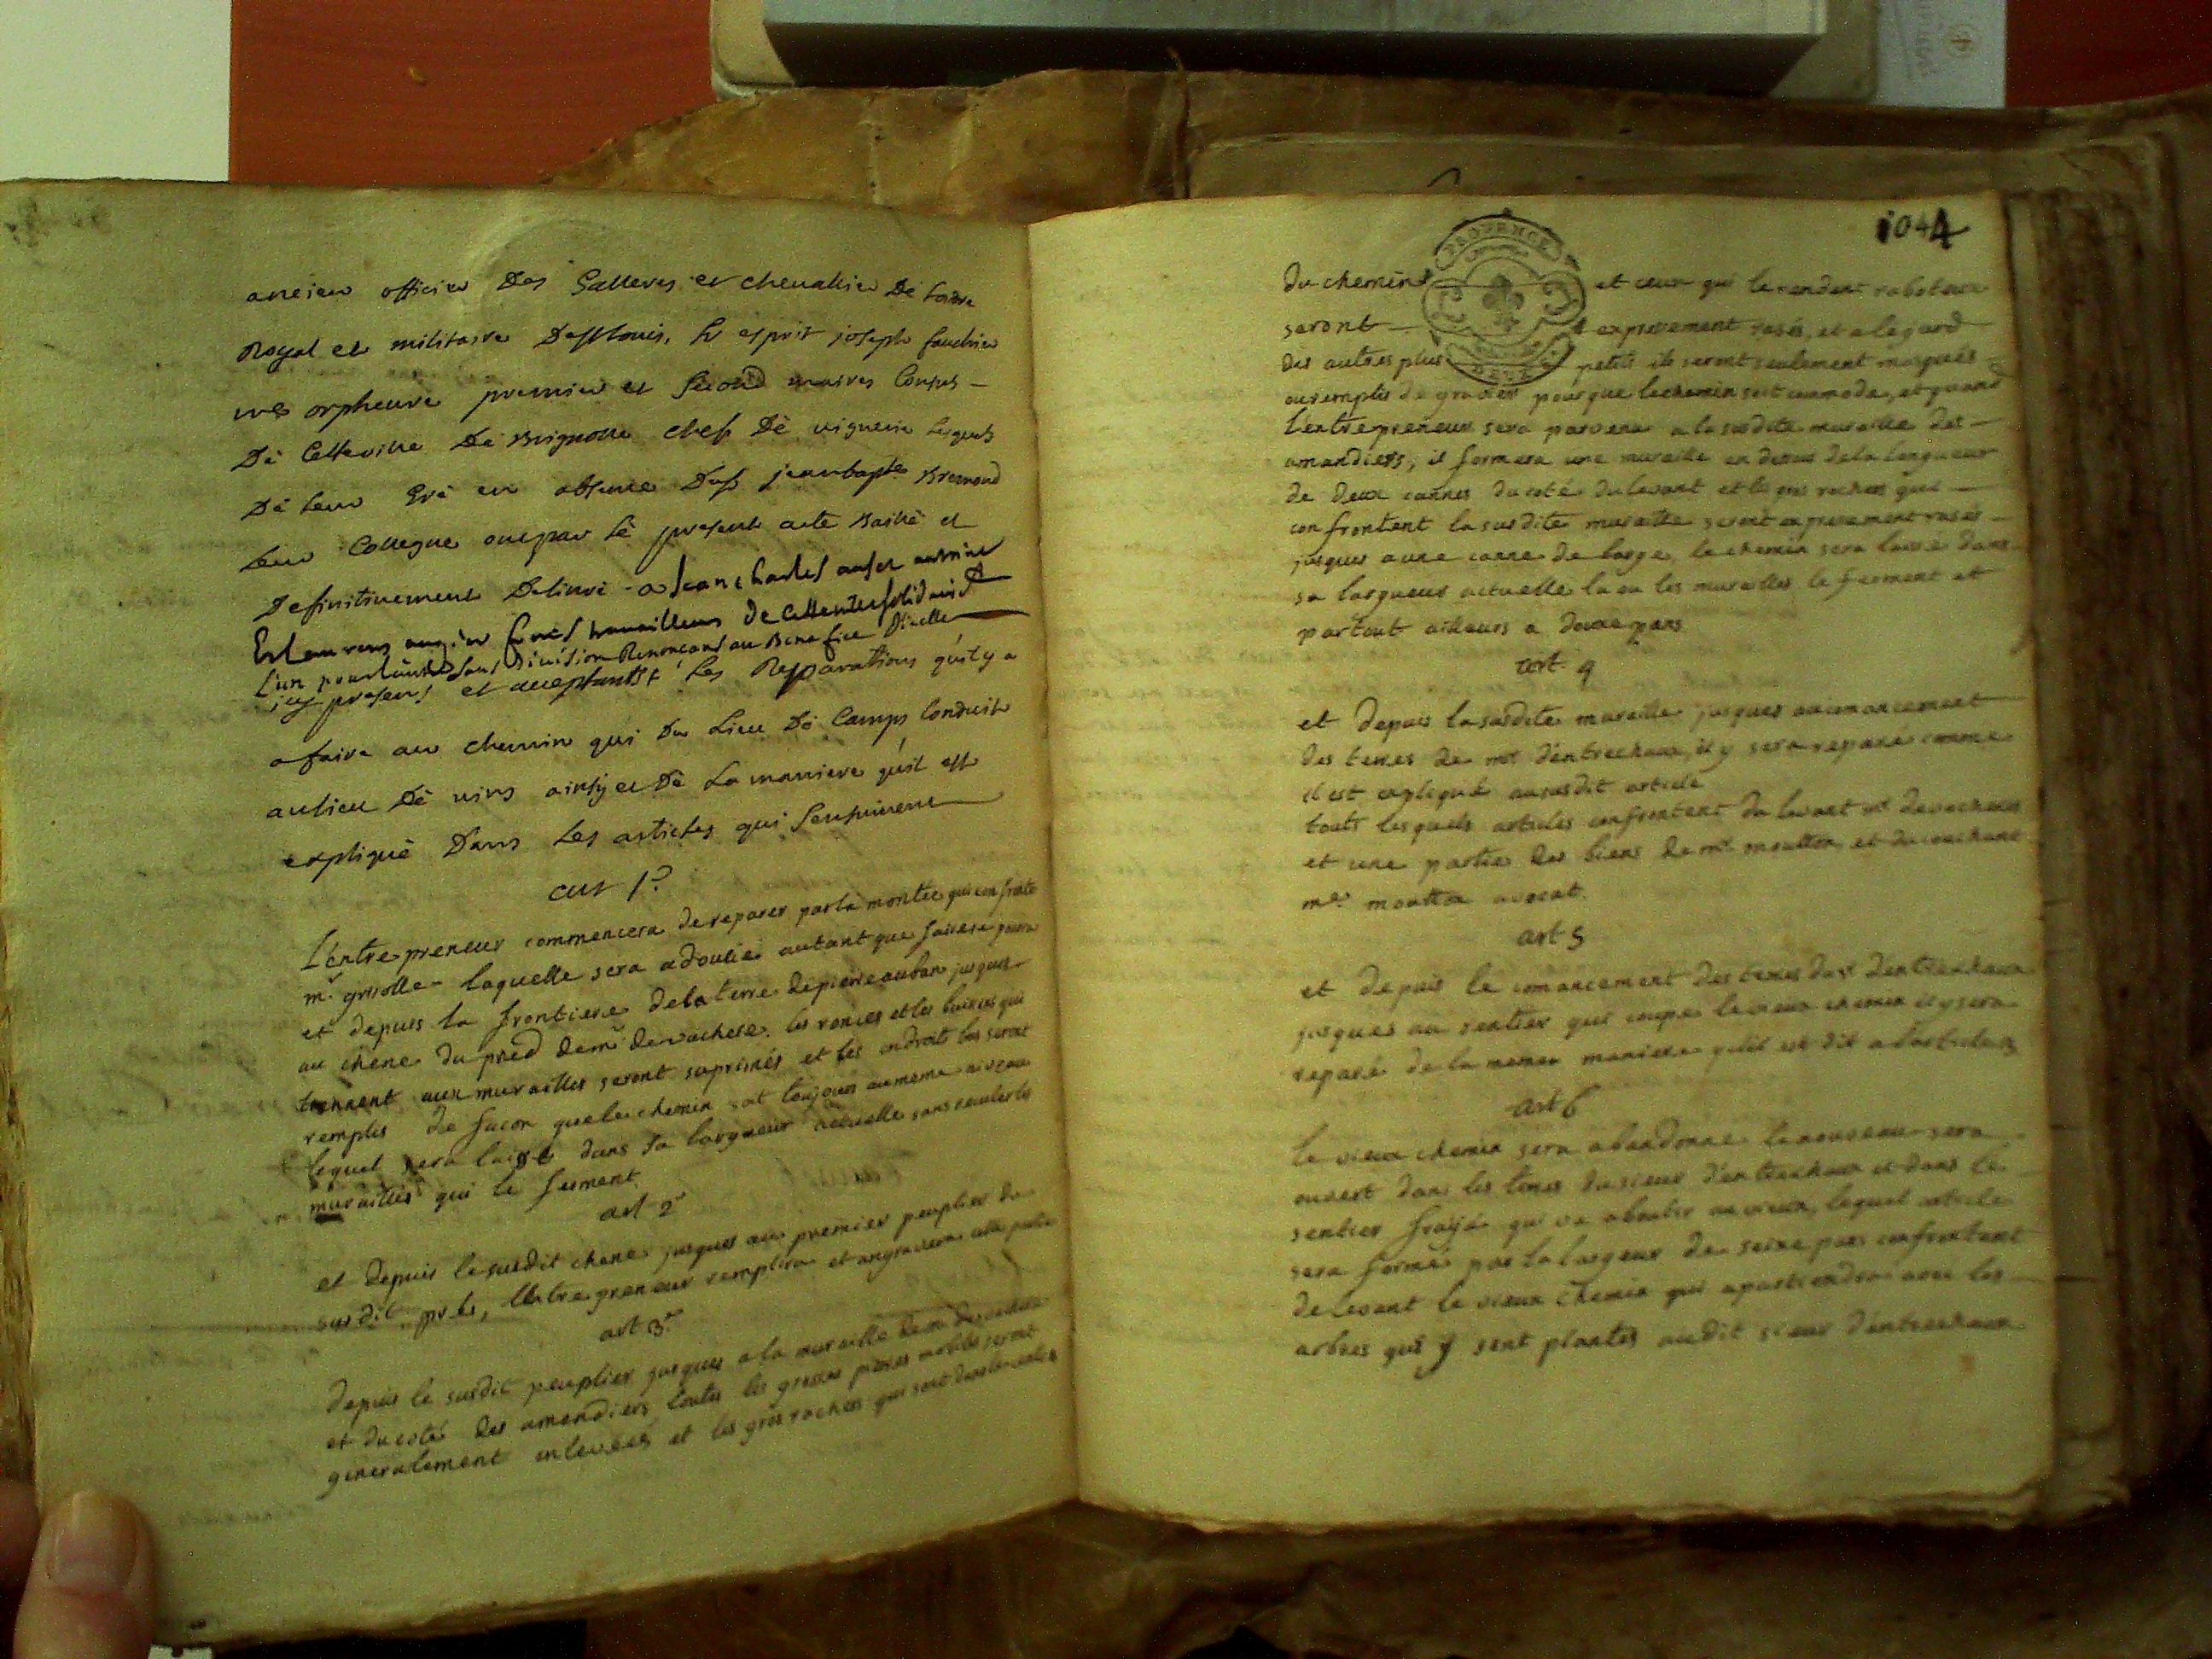 ancien officier Des Galleres et chevallier De lordre
Royal et militaire De St Louis, Sr esprit joseph fauchier
me orpheuvre premier et Second maires Consuls -
De Cette ville De Brignolle chef De viguerie Lesquels
De leur Gré en absence Du Sr jean bapte Bremond
Leur Collegue ont par Le present acte Baillé et
Definitivement Delivré - a Jean charles
Et Laurens augier freres travailleurs de Cette ville solidairemt
L'un pour l'autre sans Division Renonçant au Benefice Dicelle
icy presents et acceptants Les Reparations qu'il y a
a faire au chemin qui Du Lieu De Camps Conduit
au lieu De vins ainsy et De La maniere qu'il est
expliqué Dans Les articles qui Sensuivent
art 1r
L'entrepreneur commencera de reparer par la montée qui confronte
mr grisolle laquelle sera adoucie autant que faire se pourra
et depuis la frontiere de la terre de pierre auban jusques
au chene du pred de mr de vachere. les ronces et les buissons qui
tiennent aux murailles seront suprimés et les endroits bas seront
remplis de facon que le chemin soit toujours au meme niveau
lequel sera laissé dans sa largueur actuelle sans reculer les
murailles qui le ferment
art 2e
et depuis le susdit chene jusques au premier peuplier du
susdit pred, l'entrepreneur remplira et angravera cette partie
art 3e
Depuis le susdit peuplier jusques a la muraille de mr de vachere
et du coté des amendiers toutes les grosses pierres mobiles seront
generalement enlevées et les gros rochers qui sont dans le milieu
1044
PROVENCE
du chemin et ceux qui le rendent raboteux
seront expressement rasés, et a legard
des autres plus petits ils seront seulement masqués
ou remplis de gravier pour que le chemin soit commode, et quand
l'entrepreneur sera parvenu a la susdite muraille des
amandiers, il formera une muraille en dessus de la longueur
de deux cannes du coté du levant et les gros rochers qui
confrontent la susdite muraille seront expressement rasés
jusques a une canne de large, le chemin sera laissé dans
sa largueur actuelle la ou les murailles le ferment et
partout ailleurs a douze pans
art. 4
et depuis la susdite muraille jusques au comancement
des terres de mr d'entrechaux, il y sera reparé comme
il est expliqué au susdit article
touts lesquels articles confrontent du levant mr devachere
et une partie des biens de mr moutton et du couchant
me moutton avocat.
art 5
et depuis le comancement des terres du sr d'entrechaux
jusques au sentier qui coupe le vieux chemin il y sera
reparé de la meme maniere qu'il est dit a l'article 3
art 6
le vieux chemin sera abandonné le nouveau sera
ouvert dans les terres du sieur d'entrechaux et dans le
sentier frayé qui va aboutir au vieux, lequel article
sera formé par la largeur de seize pans confrontant
de levant le vieux chemin qui apartiendra avec les
arbres qui y sont plantés au dit sieur d'entrechaux